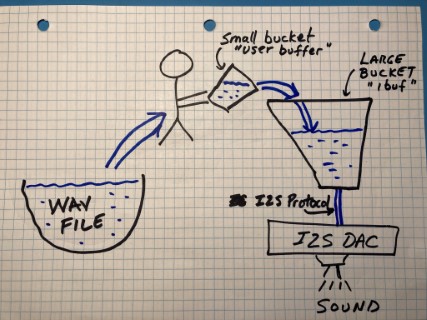 Small bucket
"user buffer"
LARGE
BUCKET
"ibuf"
WAV
FILE
I2S Protocol
I2S DAC
SOUND